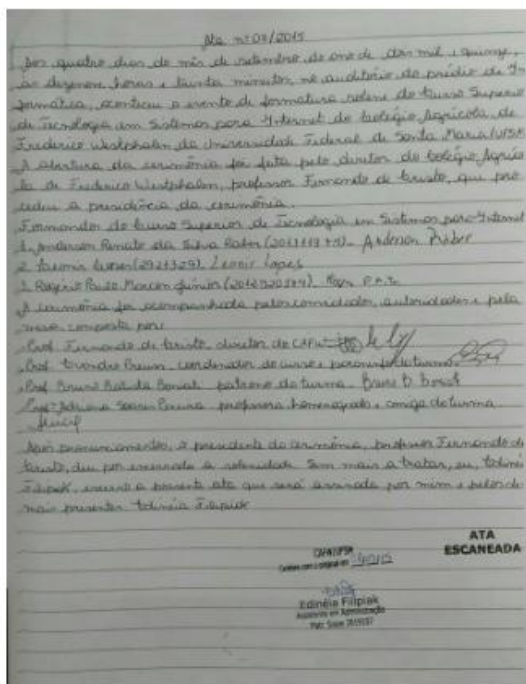 Ata nº 03/2015
Aos quatro dias do mês de setembro do ano de dois mil e quinze,
às dezenove horas e trinta minutos, no auditório do prédio de In-
formática, aconteceu o evento de formatura solene do Curso Superior
de Tecnologia em Sistemas para Internet do Colégio Agrícola de
Frederico Westphalen da Universidade Federal de Santa Maria/UFSM.
A abertura da cerimônia foi feita pelo diretor do Colégio Agríco-
la de Frederico Westphalen, professor Fernando de Cristo, que pro-
cedeu a presidência da cerimônia.
Formandos do Curso Superior de Tecnologia em Sistemas para Internet
1. Anderson Renato da Silva Rober
2. Lopes
3. Rogério Paulo Marcon Júnior
A cerimônia foi acompanhada pelos convidados, autoridades e pela
mesa composta por:
Prof. Fernando de Cristo, diretor do CAFW
Prof. Evandro Preuss, coordenador do curso e paraninfo da turma
Prof. Bruno Batista Boniati, patrono da turma. Bruno B. Boniati
Profª Adriana Soares Pereira, professora homenageada e amiga da turma
Após pronunciamentos, o presidente da cerimônia, professor Fernando de
Cristo, deu por encerrada a solenidade. Sem mais a tratar, eu, Edinéia
Filipiak, escrevi a presente ata que será assinada por mim e pelos de-
mais presentes. Edinéia Filipiak
ATA
ESCANEADA
CAFW/UFSM
Confere com o original em
Edinéia Filipiak
Assistente em Administração